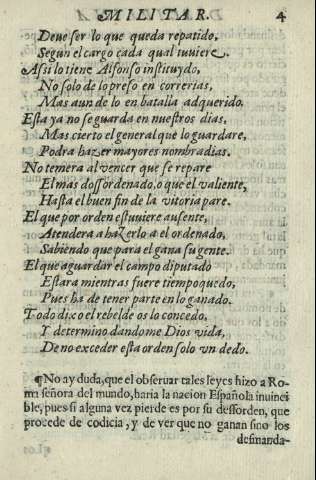 MILITAR. 4
Deue ser lo que queda repatido,
Segun el cargo cada qual tuuiere.
Assi lo tiene Alfonso instituydo,
No solo de lo preso en correrias,
Mas aun de lo en batalia adquerido.
Esta ya no se guarda en nuestros dias,
Mas cierto el general que lo guardare,
Podra hazer mayores nombradias.
No temera al vencer que se repare
El mas dessordenado, o que el valiente,
Hasta el buen fin de la vitoria pare.
El que por orden estuuiere ausente,
Atendera a hazerlo a el ordenado,
Sabiendo que para el gana su gente.
El que aguardar el campo diputado
Estara mientras fuere tiempo quedo,
Pues ha de tener parte en lo ganado.
Todo dixo el rebelde os lo concedo,
Y determino dandome Dios vida,
De no exceder esta orden solo vn dedo.
¶No ay duda, que el obseruar tales leyes hizo a Ro-
ma señora del mundo, haria la nacion Española inuinci
ble, pues si alguna vez pierde es por su dessorden, que
procede de codicia, y de ver que no ganan sino los
desmanda-